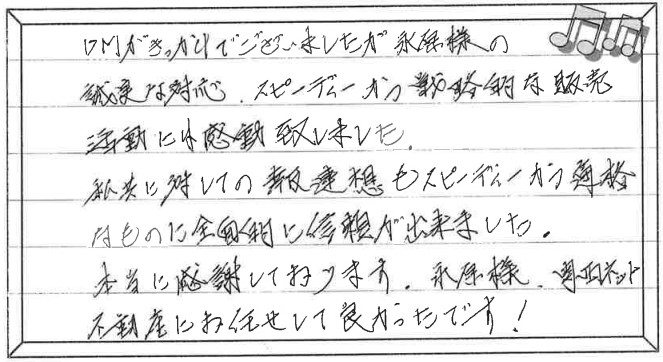 DMがきっかけでございましたが永原様の
誠実な対応、スピーディーかつ戦略的な販売
活動には感動致しました。
私共に対しての報連想もスピーディーかつ適格
なものに全面的に信頼が出来ました。
本当に感謝しております。永原様、ネット
不動産にお任せして良かったです!